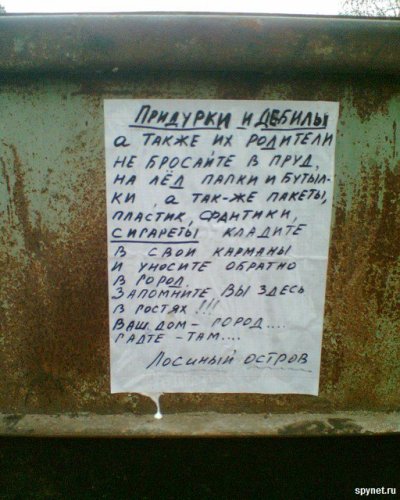 ПРИДУРКИ И ДЕБИЛЫ
а ТАКЖЕ ИХ РОДИТЕЛИ
НЕ БРОСАЙТЕ В ПРУД,
НА ЛЁД ПАПКИ И БУТЫЛ-
КИ, а ТАК-ЖЕ ПАКЕТЫ,
ПЛАСТИК, ФАНТИКИ,
СИГАРЕТЫ КЛАДИТЕ
В СВОИ КАРМАНЫ
И УНОСИТЕ ОБРАТНО
В ГОРОД.
ЗАПОМНИТЕ ВЫ ЗДЕСЬ
В ГОСТЯХ!!!
ВАШ ДОМ - ГОРОД....
ГАДТЕ - ТАМ....
ЛОСИНЫЙ ОСТРОВ
spynet.ru